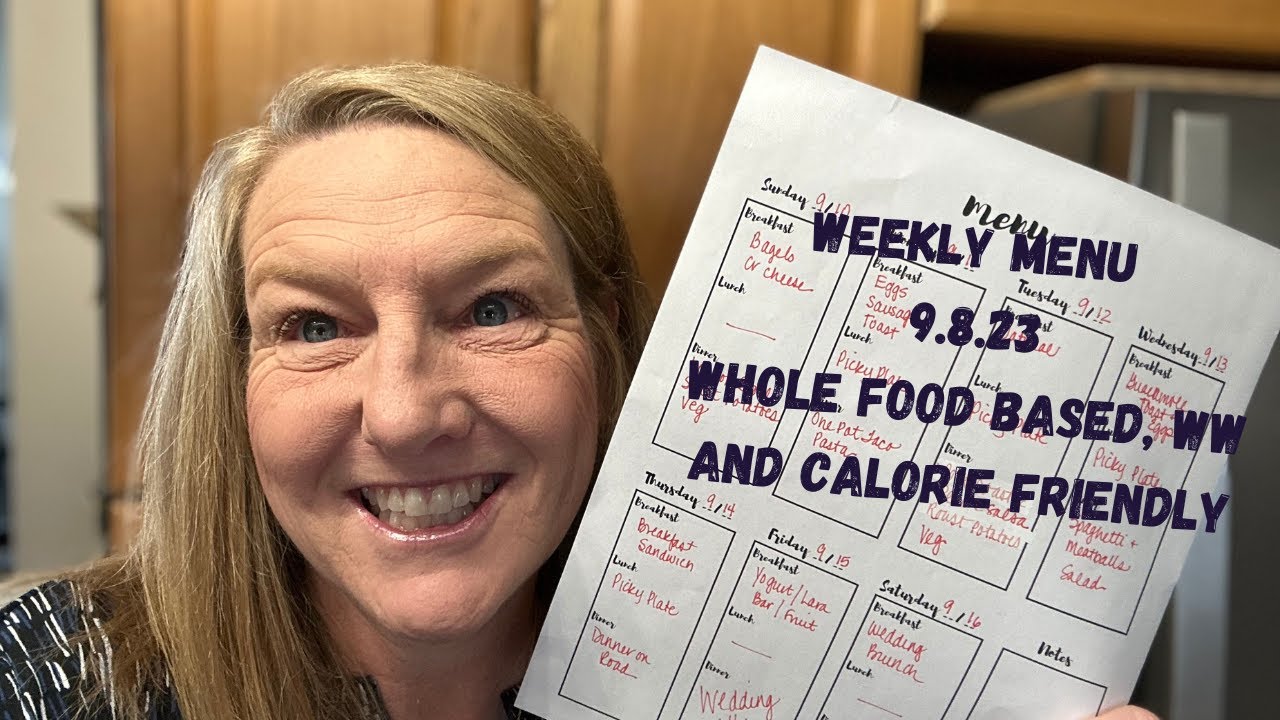 menu
WEEKLY MENU
9.8.23
WHOLE FOOD BASED, WW
AND CALORIE FRIENDLY
Sunday 9/10
Breakfast
Bagels
Cr cheese
Lunch
Dinner
Potatoes
Veg
Breakfast
Eggs
Sausag
Toast
Lunch
Picky Pla
One Pot Taco
Pasta
Tuesday 9/12
Lunch
Picky Plate
Dinner
Salsa
Roast Potatoes
Veg
Wednesday 9/13
Breakfast
Toast
Eggs
Picky Plate
Spaghetti +
Meatballs
Salad
Thursday 9/14
Breakfast
Breakfast
Sandwich
Lunch
Picky Plate
Dinner
Dinner on
Road
Friday 9/15
Breakfast
Yogurt/Lara
Bar/Fruit
Lunch
Dinner
Wedding
Saturday 9/16
Breakfast
Wedding
Brunch
Lunch
Notes